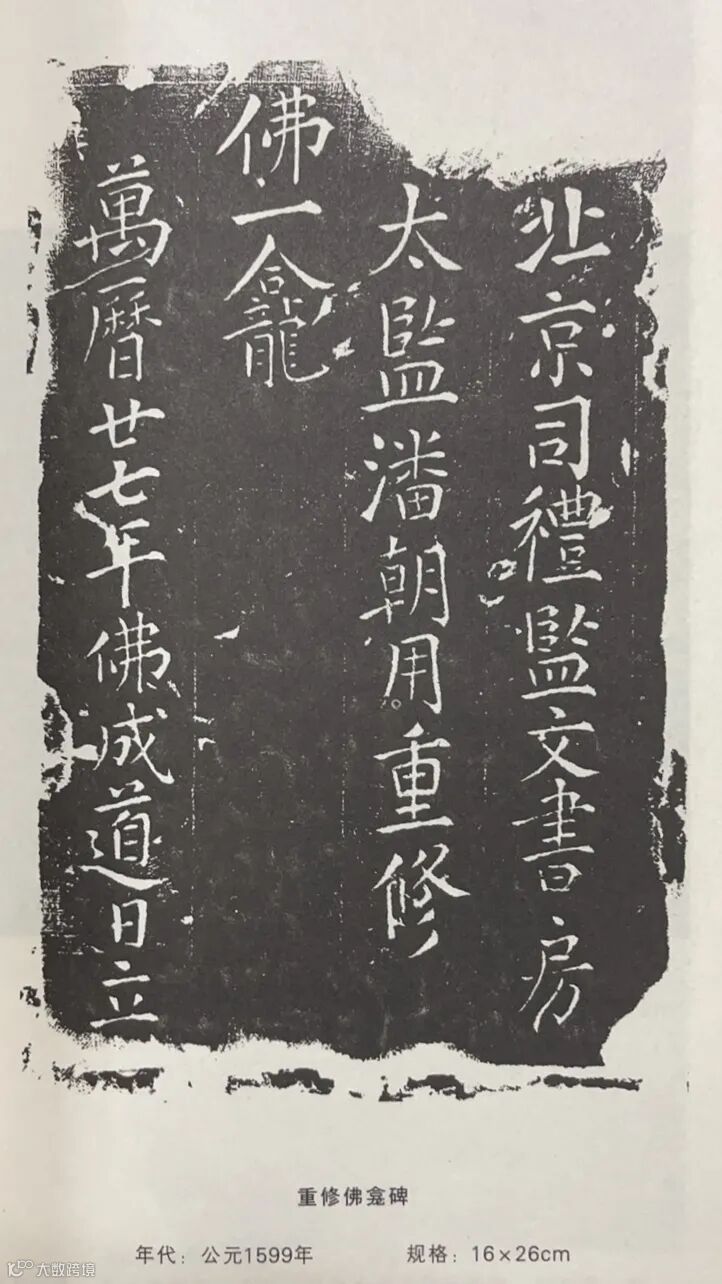 北京司禮監文書房
太監潘朝用重修
佛一龕
萬曆廿七年佛成道日立
重修佛龛碑
年代：公元1599年
规格：16×26cm
大数跨境